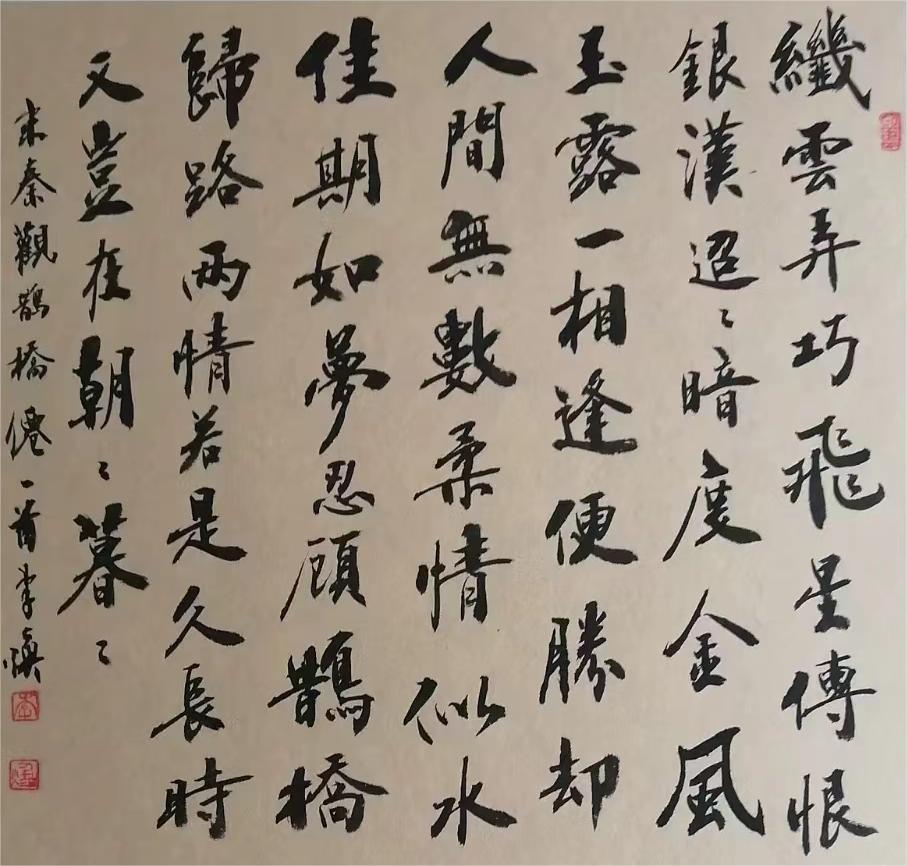 纖雲弄巧飛星傳恨
銀漢迢〻暗度金風
玉露一相逢便勝却
人間無數柔情似水
佳期如夢忍顧鵲橋
歸路兩情若是久長時
又豈在朝〻暮〻
宋秦觀鵲橋僊一首李煥